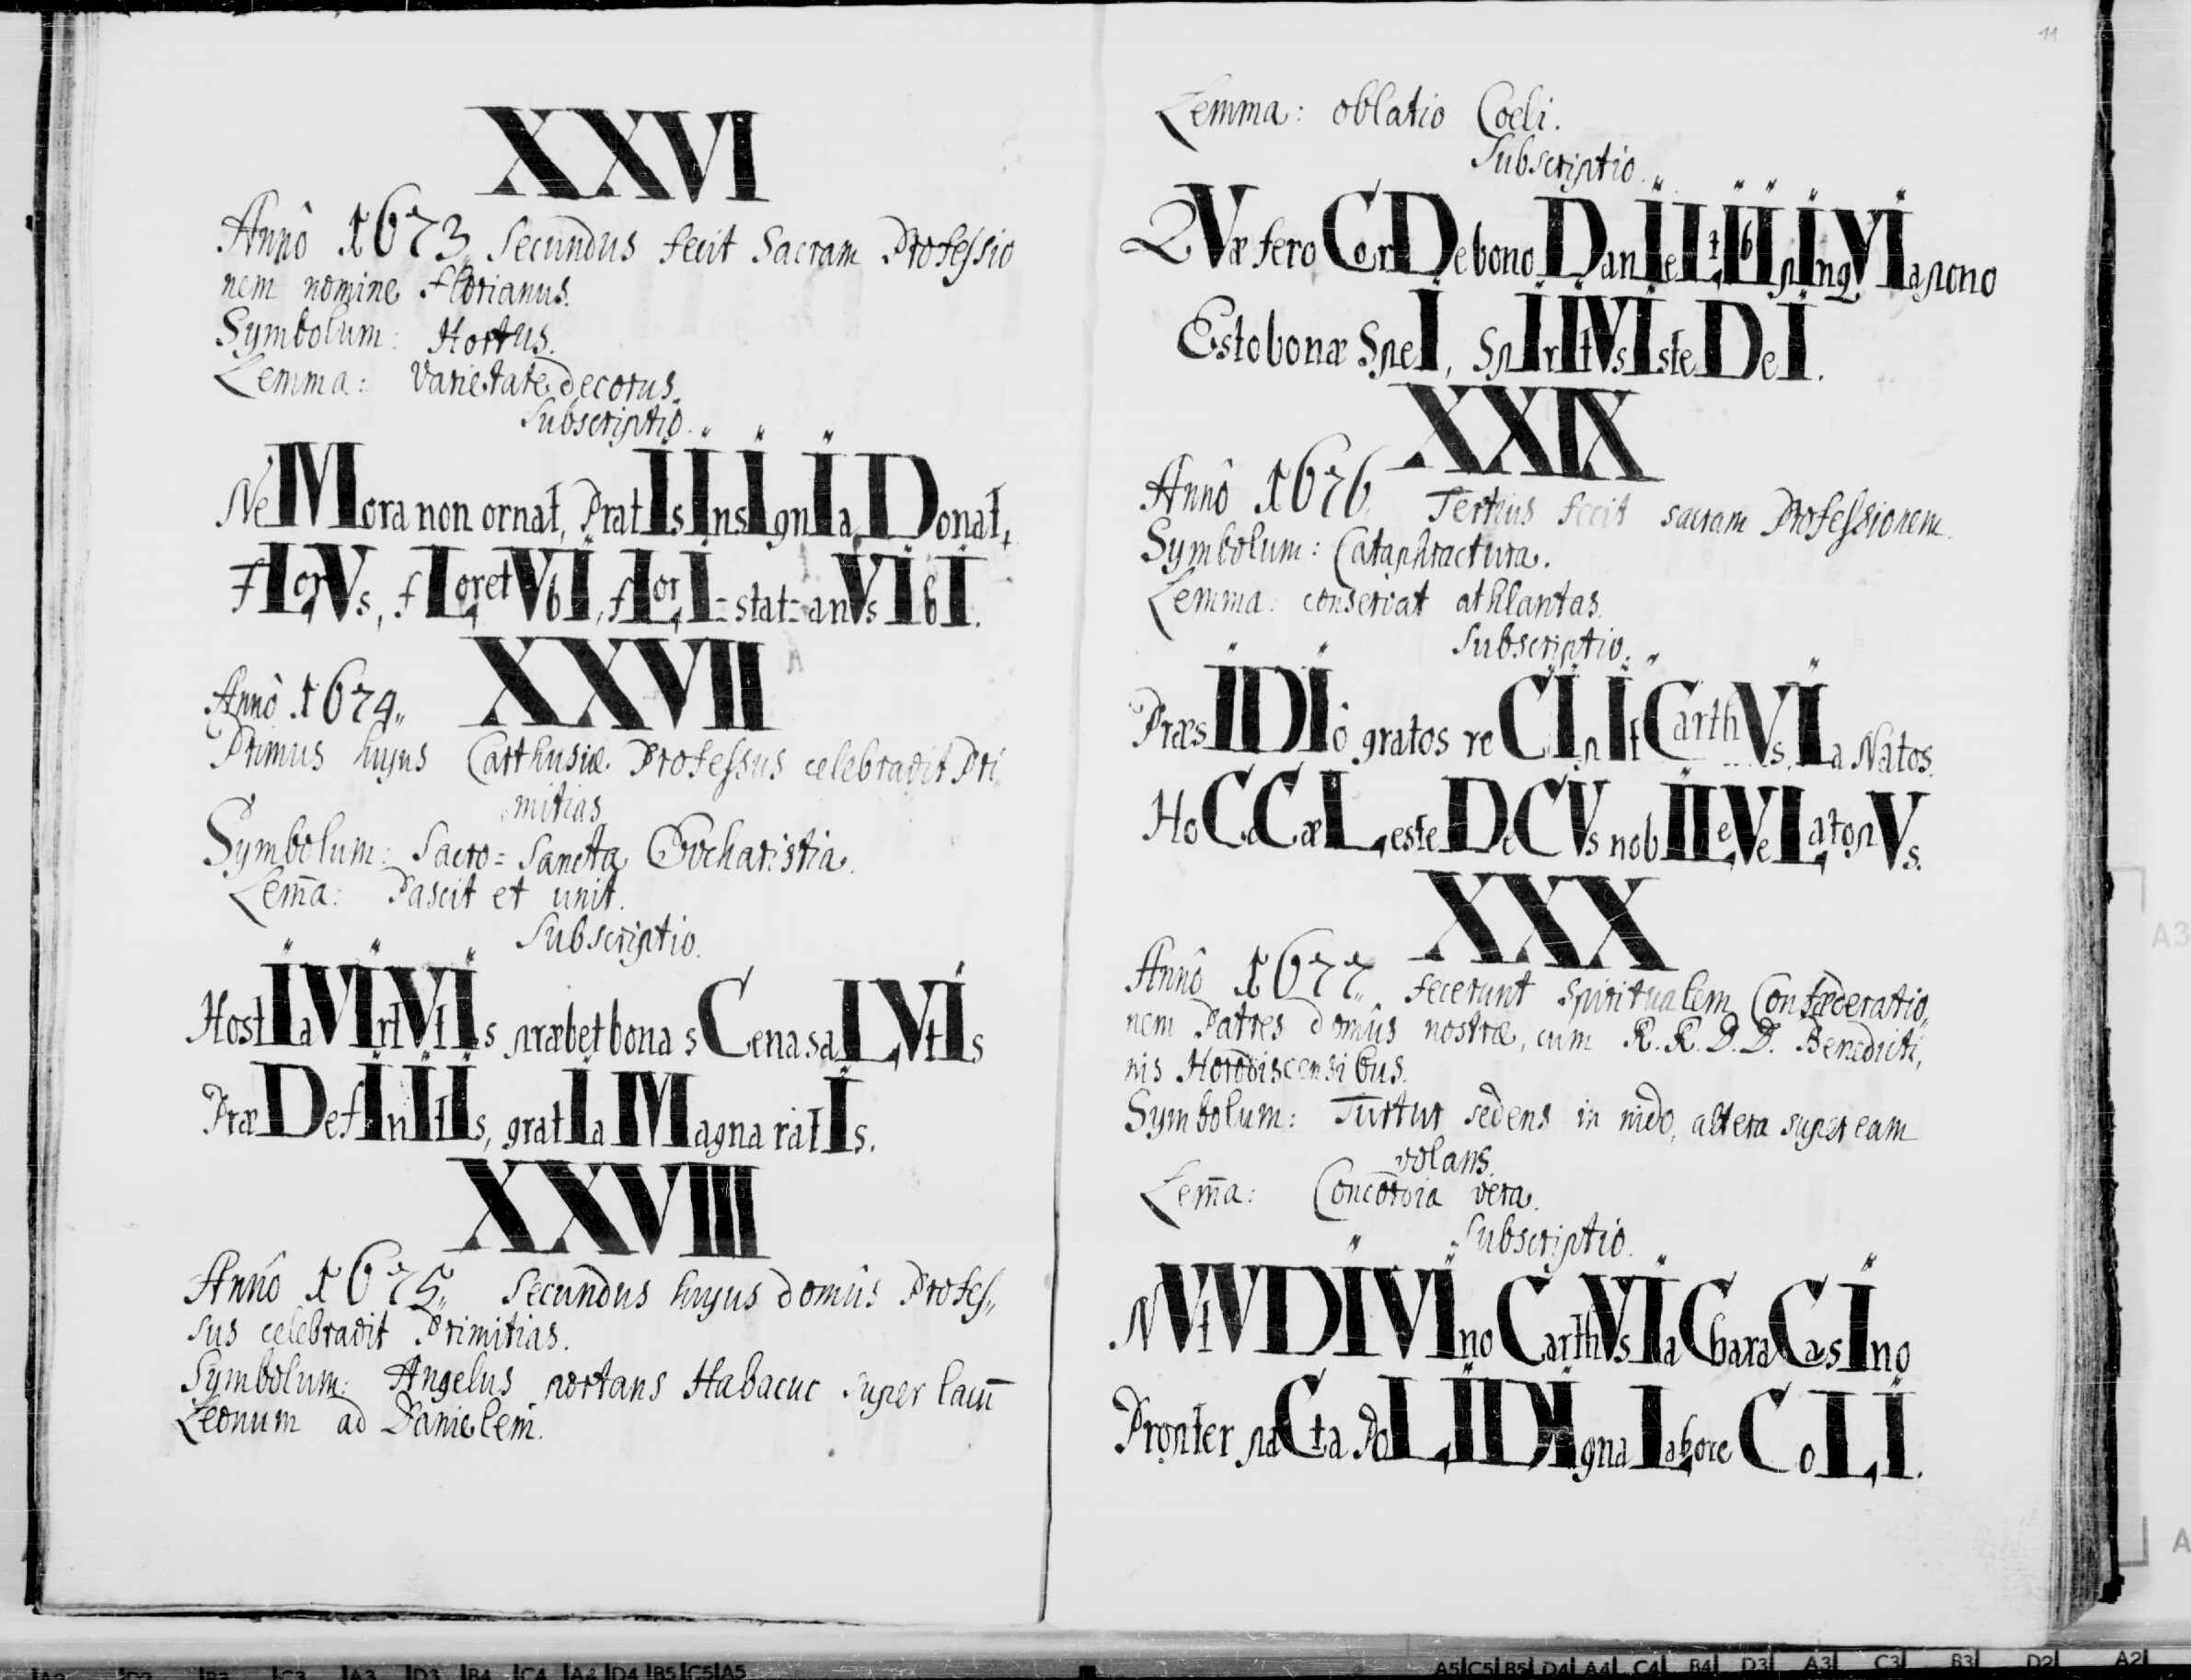 XXVI
Annô 1673,, Secundus fecit Sacram Professio
nem nomine Florianus.
Symbolum: Hortus.
Lemma: Varietate decorus.
Subscriptio.
NeMora non ornat, PratIs InsIgnIa Donat,
FLorVs, fLoret VbI, fLor I=stat=anVs IbI.
XXVII
Annô 1674,,
Primus hujus Carthusiæ Professus celebravit Pri,,
mitias
Symbolum: Sacro=Sancta Eucharistia.
Lem̄a: Pascit et unit.
Subscriptio.
HostIa VIrtVtIs præbet bona sCena saLVtIs
PræDefInItIs, gratIa Magna ratIs.
XXVIII
Annô 1675,, Secundus hujus domûs Profes,,
sus celebravit Primitias.
Symbolum: Angelus portans Habacuc super lacū
Leonum ad Danielem.
11
Lemma: oblatio Coeli.
Subscriptio.
QVæ fero Cor De bono DanIeL tIbI pIngVIa pono
Esto bonæ SpeI, SpIrItVs Iste DeI.
XXIX
Annô 1676,, Tertius fecit sacram Professionem.
Symbolum: Cataphractura.
Lemma: conservat athlantas.
Subscriptio.
PræsIDIô gratos reCIpIt CarthVsIa Natos.
HoC CæLeste DeCVs nobILe VeLat opVs.
XXX
Annô 1677,, fecerunt spiritualem Confæderatio,,
nem Patres domûs nostræ, cum R.R.D.D. Benedicti,,
nis Horodiscensibus.
Symbolum: Turtur sedens in nido, altera super eam
volans.
Lem̄a: Concordia vera.
Subscriptio.
NVtV DIVIno CarthVsIa Chara CasIno
Propter paCta PoLI DIgna Labore CoLI.